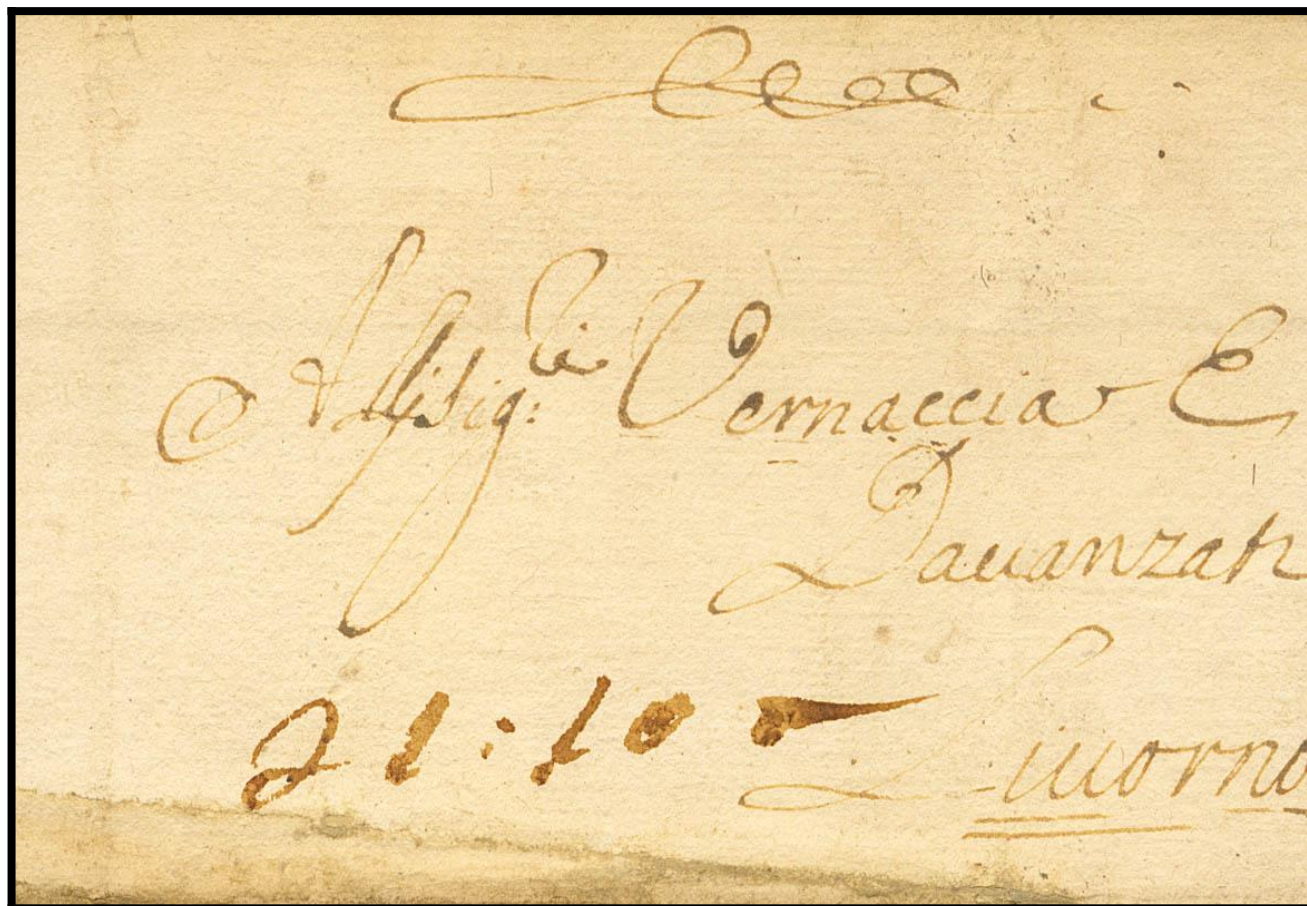 Alli Sig.ri Vernaccia E
Davanzati
21:10 Livorno